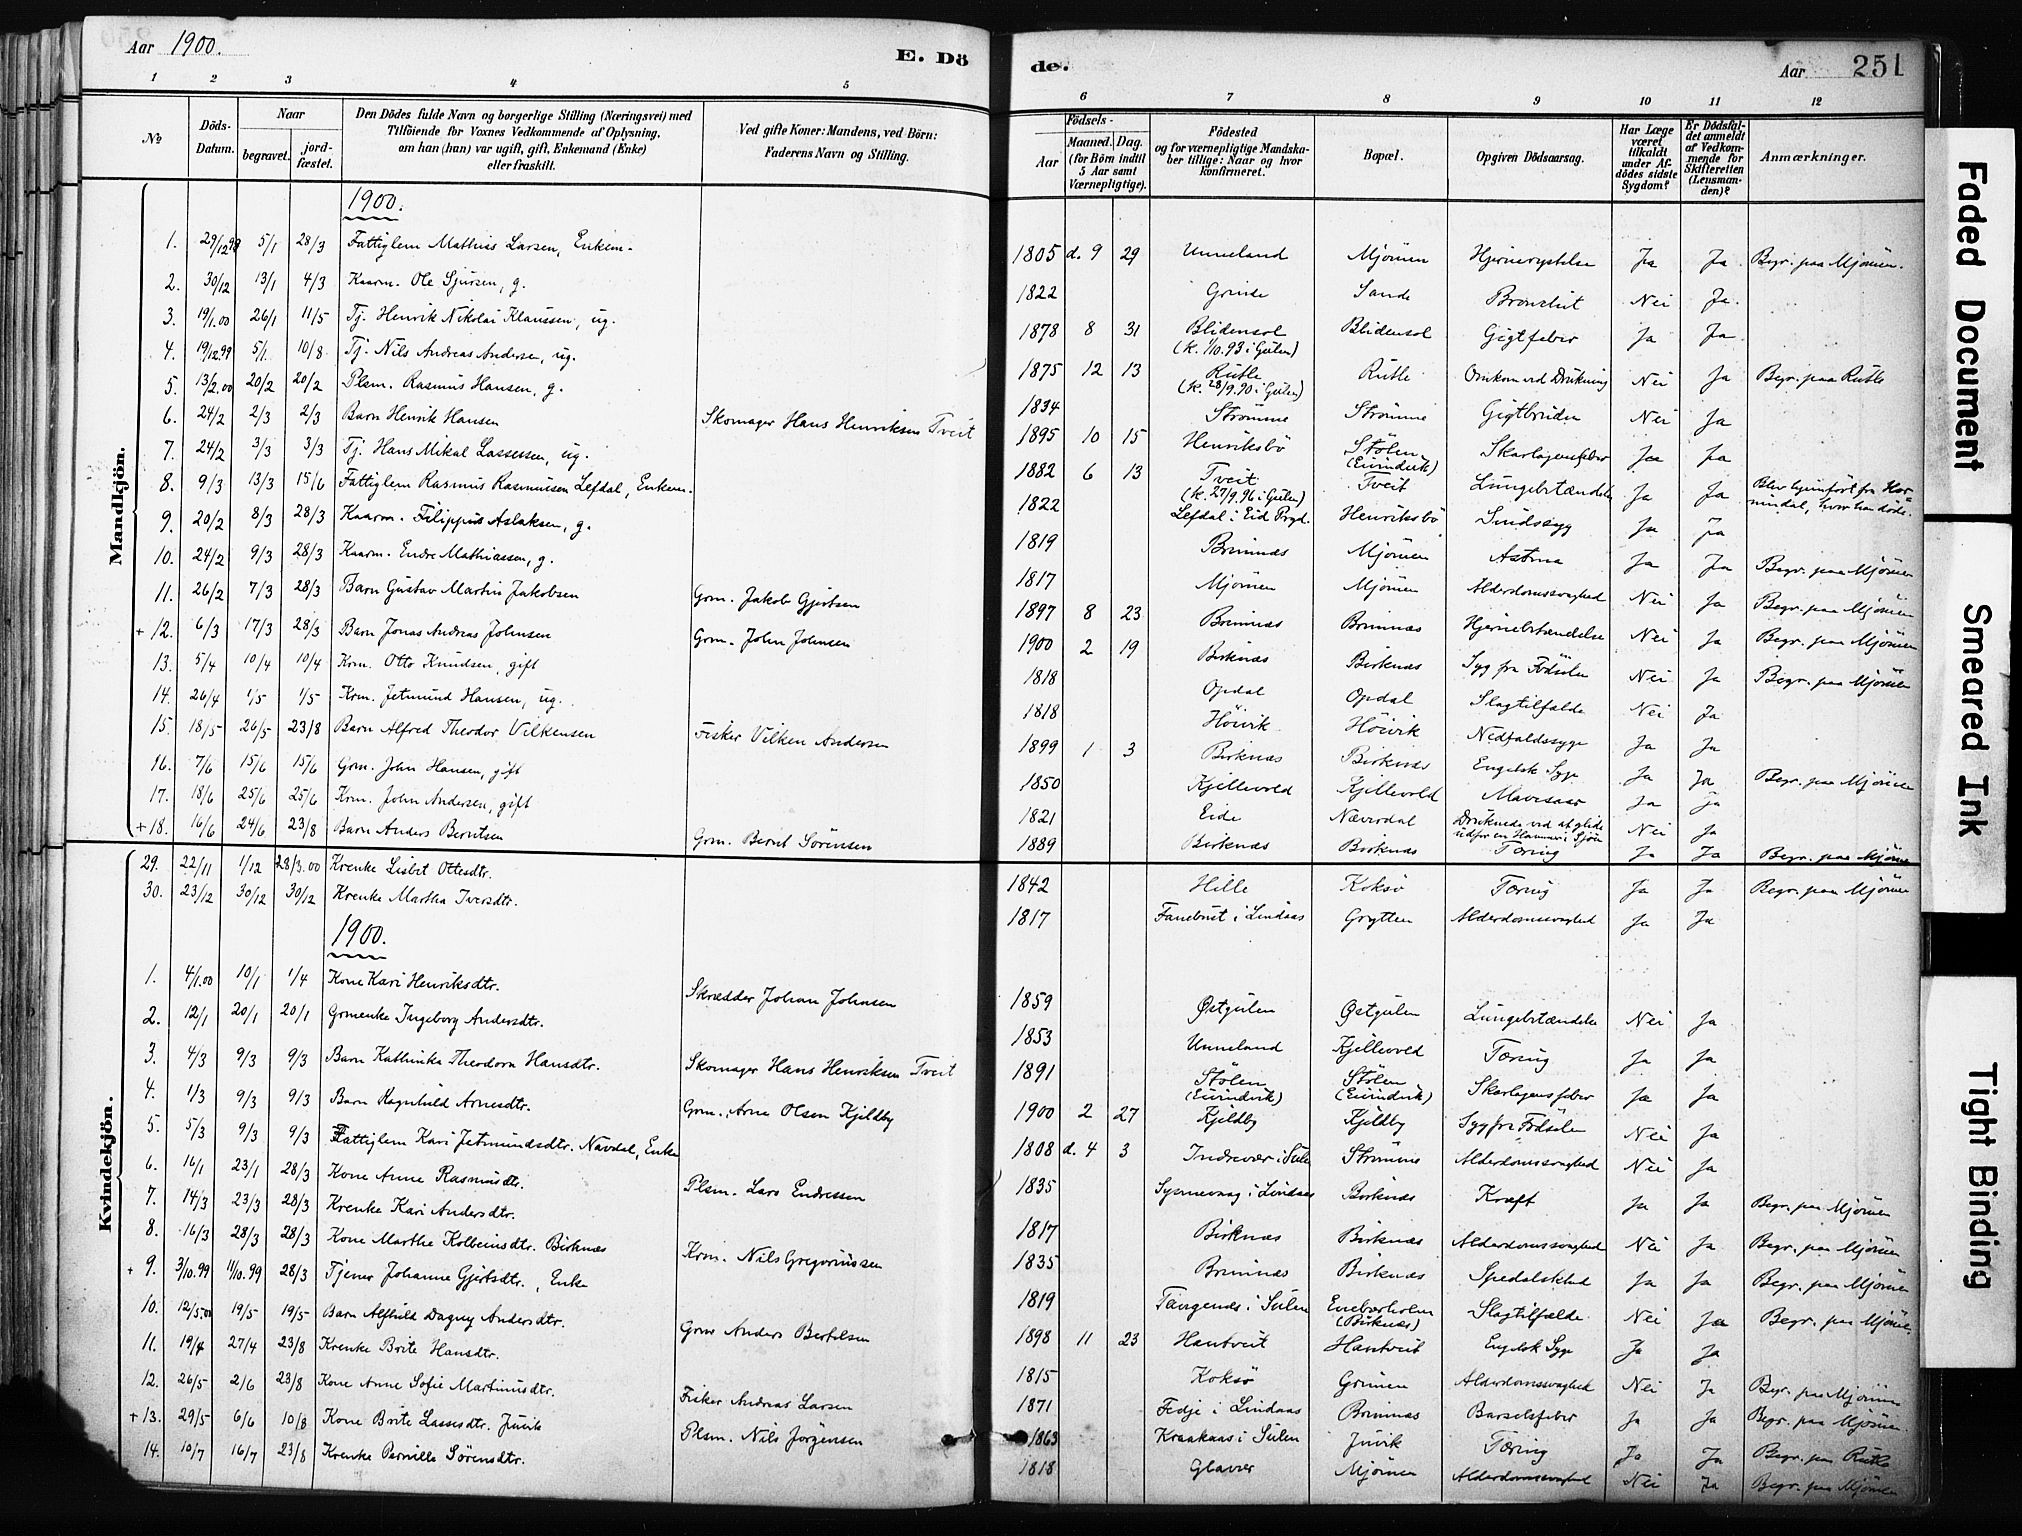 Aar 1900.
E. Dö
de.
Aar
251
1 2 3 4 5
6 7 8 9 10 11 12
№
Döds-Datum.
Naar
begravet.
jord-fæstet.
Den Dödes fulde Navn og borgerlige Stilling (Næringsvei) med
Tilföiende for Voxnes Vedkommende af Oplysning,
om han (hun) var ugift, gift, Enkemand (Enke)
eller fraskilt.
Ved gifte Koner: Mandens, ved Börn:
Faderens Navn og Stilling.
Födsels-
Aar
Maaned. Dag.
(for Börn indtil
5 Aar samt
Værnepligtige).
Födested
og for værnepligtige Mandska-
ber tillige: Naar og hvor
konfirmeret.
Bopæl.
Opgiven Dödsaarsag.
Har Læge
været
tilkaldt
under Af-
dödes sidste
Sygdom?
Er Dödsfal-
det anmeldt
af Vedkom-
mende for
Skifteretten
(Lensman-
den)?
Anmærkninger.
Mandkjön.
1900.
1. 29/12 98 5/1 28/3 Fattiglem Mathias Larsen, Enkem- 1805 d. 9 29 Unneland Mjömen Hjernerystelse Ja Ja Begr. paa Mjömen.
2. 30/12 13/1 4/3 Kaarm. Ole Sjursen, g. 1822 Grinde Sande Bronchit Nei Ja.
3. 19/1.00 26/1 11/5 Tj. Henrik Nikolai Klaussen, ug. 1878 8 31 Blidensol (k. 1/10.93 i Gulen) Blidensol Gigtfeber Ja Ja
4. 19/12.99 5/1 10/8 Tj. Nils Andreas Andersen, ug. 1875 12 13 Rutle (k. 28/9.90 i Gulen) Rutle Omkom ved Drukning Nei Ja Begr. paa Rutle
5. 13/2.00 20/2 20/2 Plsm. Rasmus Hansen, g. 1834 Strömme Strömme Gigtbruden Nei Ja
6. 24/2 2/3 2/3 Barn Henrik Hansen Skomager Hans Henriksen Tveit 1895 10 15 Henriksbö Stölen (Eivindvik) Skarlagensfeber Ja Ja
7. 24/2 3/3 3/3 Tj. Hans Mikal Lassessen, ug. 1882 6 13 Tveit (k. 27/9.96 i Gulen) Tveit Lungebetændelse Ja Ja
8. 9/3 13/3 15/6 Fattiglem Rasmus Rasmussen Lefdal, Enkem. 1822 Lefdal i Eid Prgd. Henriksbö Sindssyg Ja Ja Blev hjemført fra Hornindal, hvor han døde.
9. 20/2 8/3 28/3 Kaarm. Filippus Aslaksen, g. 1819 Brinnæs Mjömen Astma Ja Ja Begr. paa Mjömen
10. 24/2 9/3 28/3 Kaarm. Endre Mathiassen, g. 1817 Mjömen Mjömen Alderdomssvaghed Nei Ja Begr. paa Mjömen
11. 26/2 7/3 28/3 Barn Gustav Martin Jakobsen Grm. Jakob Gjertsen 1897 8 23 Brinnæs Brinnæs Hjernebetændelse Nei Ja Begr. paa Mjömen
+ 12. 6/3 17/3 28/3 Barn Jonas Andreas Johnsen Grm. John Johnsen 1900 2 19 Birknæs Birknæs Syg fra Födselen Nei Ja Begr. paa Mjömen
13. 5/4 10/4 10/4 Krm. Otto Knudsen, gift 1818 Opdal Opdal Slagtilfælde Nei Ja
14. 26/4 1/5 1/5 Krm. Jetmund Hansen, ug. 1818 Höivik Höivik Nedfaldssyge Ja Ja
15. 18/5 26/5 23/8 Barn Alfred Theodor Vilkensen Fisker Vilken Andersen 1899 1 3 Birknæs Birknæs Engelsk Syge Ja Ja Begr. paa Mjömen
16. 7/6 15/6 15/6 Grm. John Hansen, gift 1850 Kjellevold Kjellevold Mavesaar Ja Ja
17. 18/6 25/6 25/6 Krm. John Andersen, gift 1821 Eide Nævrdal Druknede ved at glide udfor en Hammer i Sjöen Nei Ja
+ 18. 16/6 24/6 23/8 Barn Anders Berntsen Grm. Bernt Sörensen 1889 Birknæs Birknæs Tæring Ja Ja Begr. paa Mjömen
Kvindekjön.
29. 22/11 1/12 28/3.00 Krenke Lisbet Ottesdtr. 1842 Hille Koksö Tæring Ja Ja Begr. paa Mjömen
30. 23/12 30/12 30/12 Krenke Martha Iversdtr. 1817 Fanebust i Lindaas Grytten Alderdomssvaghed Ja Ja
1900.
1. 4/1.00 10/1 1/4 Kone Kari Henriksdtr. Skrædder Johan Johnsen 1859 Østgulen Østgulen Lungebetændelse Nei Ja
2. 12/1 20/1 20/1 Grmenke Ingeborg Andersdtr. 1853 Unneland Kjellevold Tæring Ja Ja
3. 4/3 9/3 9/3 Barn Kathinka Theodora Hansdtr. Skomager Hans Henriksen Tveit 1891 Stölen (Eivindvik) Stölen (Eivindvik) Skarlagensfeber Ja Ja
4. 1/3 9/3 9/3 Barn Ragnhild Arnesdtr. Grm. Arne Olsen Kjeldby 1900 2 27 Kjeldby Kjeldby Syg fra Födselen Nei Ja
5. 5/3 9/3 9/3 Fattiglem Kari Jetmundsdtr. Navdal, Enke 1808 d. 4 3 Indrevær i Sulen Strömme Alderdomssvaghed Nei Ja
6. 16/1 23/1 28/3 Kone Anne Rasmusdtr. Plsm. Lars Endressen 1835 i Lindaas Birknæs Kræft Ja Ja Begr. paa Mjömen
7. 14/3 23/3 28/3 Krenke Kari Andersdtr. 1817 Birknæs Birknæs Alderdomssvaghed Nei Ja Begr. paa Mjömen
8. 16/3 28/3 28/3 Kone Marthe Kolbeinsdtr. Birknæs Krm. Nils Gregoriussen 1835 Brinnæs Birknæs Spedalskhed Ja Ja Begr. paa Mjömen
+ 9. 3/10.99 11/10.99 28/3 Tjener Johanne Gjertsdtr., Enke 1819 Tangenæs i Sulen Enebærholm (Birknæs) Slagtilfælde Nei Ja Begr. paa Mjömen.
10. 12/5.00 19/5 19/5 Barn Alfhild Dagny Andersdtr. Grm Anders Bertelsen 1898 11 23 Hantveit Hantveit Engelsk Syge Ja Ja
11. 19/4 27/4 23/8 Krenke Brite Hansdtr. 1815 Koksö Grimen Alderdomssvaghed Nei Ja Begr. paa Mjömen
12. 26/5 2/6 23/8 Kone Anne Sofie Martinusdtr. Fisker Andreas Larsen 1871 Fedje i Lindaas Brinnæs Barselsfeber Ja Ja Begr. paa Mjömen.
+ 13. 29/5 6/6 10/8 Kone Brite Lassesdtr. Juvik Plsm. Nils Jörgensen 1863 Kraakaas i Sulen Juvik Tæring Ja Ja Begr. paa Rutle
14. 10/7 16/7 23/8 Krenke Pernille Sörensdtr. 1818 Glavær Mjömen Alderdomssvaghed Nei Ja Begr. paa Mjömen
Faded Document
Smeared Ink
Tight Binding